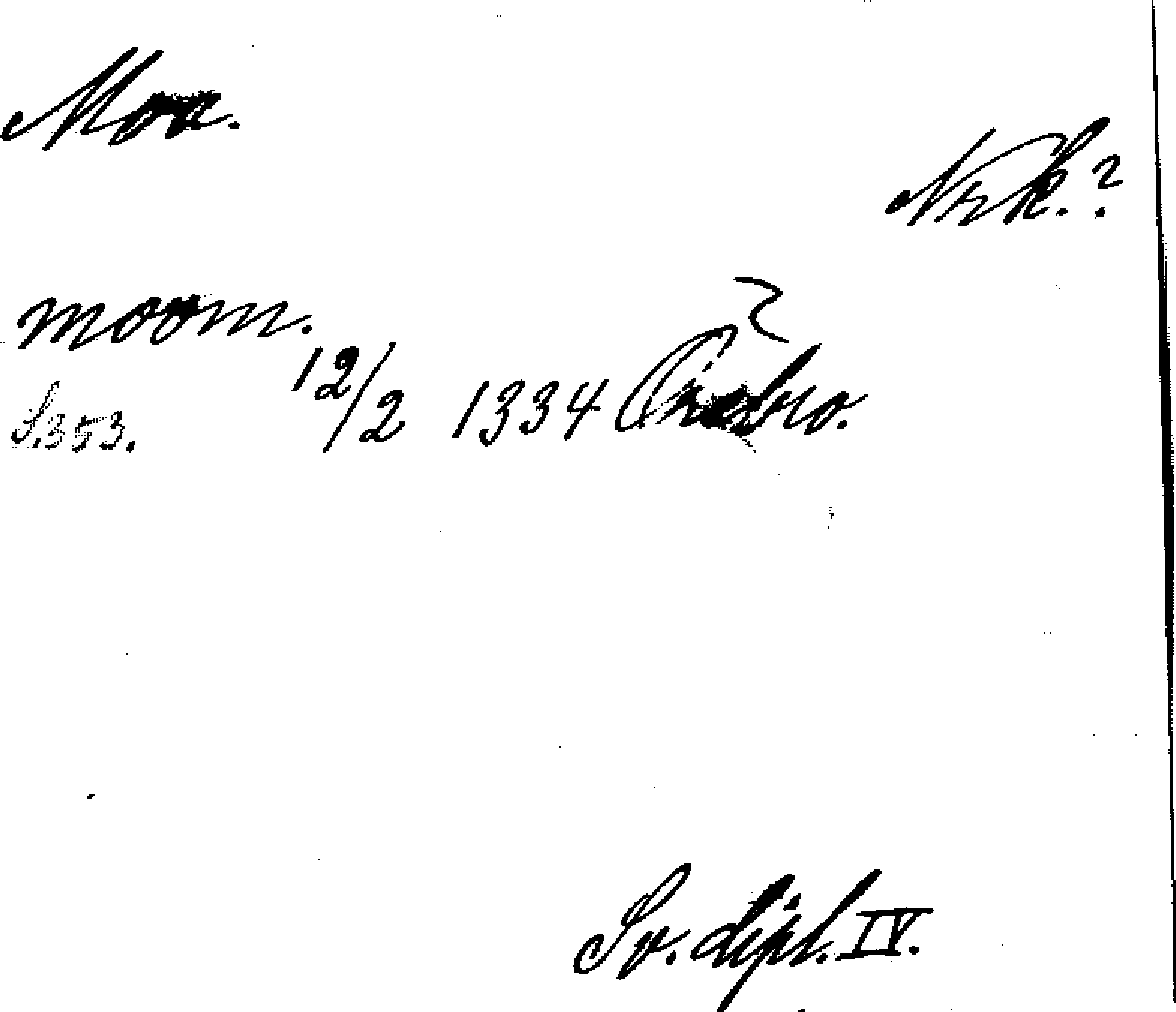 Moa.
Nrk.?
moom.
S. 353. 12/2 1334 Örebro.
Sv. dipl. IV.